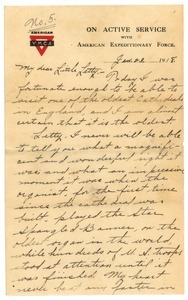 No. 5.
AMERICAN
Y.M.C.A.
ON ACTIVE SERVICE
WITH
AMERICAN EXPEDITIONARY FORCE.
Jan 22 1918.
My dear Little Letty:-
Today I was
fortunate enough to be able to
visit one of the oldest Cathedrals
in England and I am
certain that it is the oldest.
Letty, I never will be able
to tell you what a magnifi-
cent and wonderful sight it
was, and what an impressive
moment, it was when the
organist, for the first time
since the cathedral was
built, played the Star
Spangled Banner, on the
oldest organ in the world,
while hundreds of U.S. troops
stood at attention until it
was finished. My heart
never beat any faster in